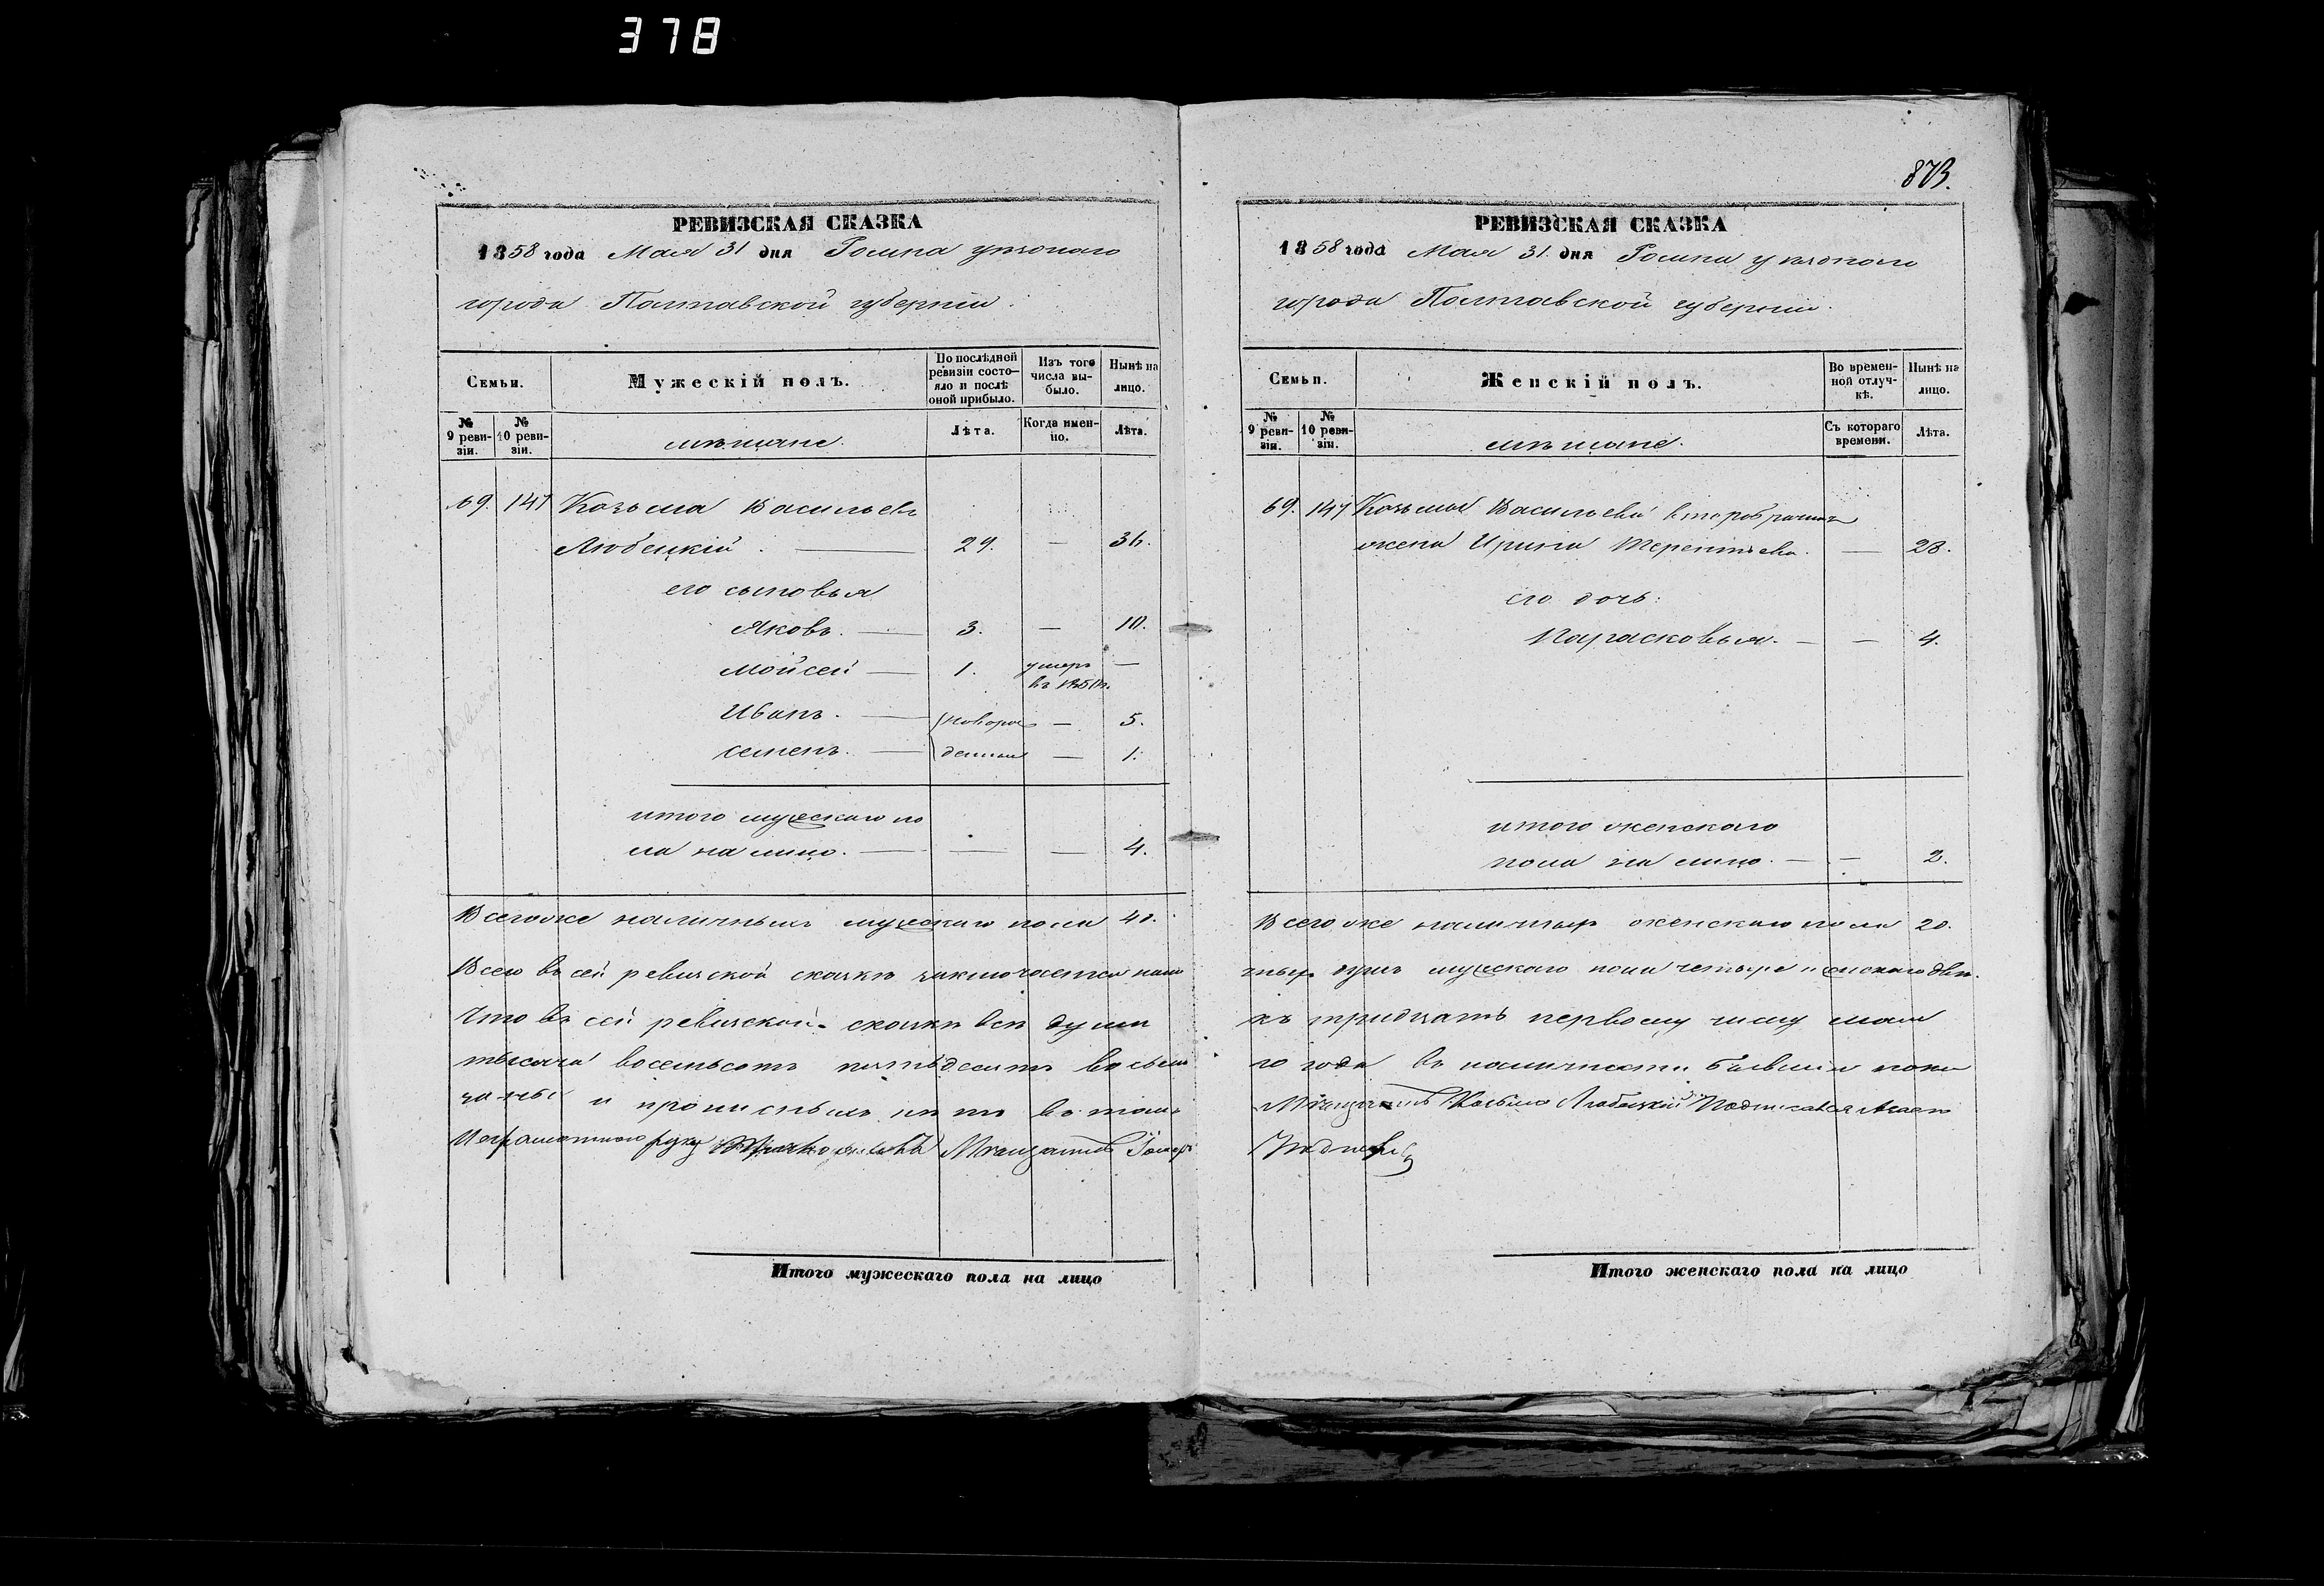 378
РЕВИЗСКАЯ СКАЗКА
1858 года Мая 31 дня Ромна уѣзднаго
города Полтавской губерніи.
Семьи.
Мужескій полъ.
По послѣдней ревизіи состояло и послѣ оной прибыло.
Изъ того числа выбыло.
Нынѣ на лицо.
№ 9 ревизіи.
№ 10 ревизіи.
мѣщане.
Лѣта.
Когда именно.
Лѣта.
69. 147 Козьма Васильевъ
Любецкій. — 29. — 36.
его сыновья
Яковъ. — 3. — 10.
Мойсей — 1. умеръ —
въ
Иванъ. — новорож — 5.
Семенъ. — денные — 1.
итого мужескаго по
ла на лицо. — — — 4.
Всегоже наличныхъ мужескаго пола 4.
Всего въ сей ревизской сказкѣ заключается
Что въ сей ревизской сказкѣ всѣ души
тысяча восемьсотъ пятьдесятъ восьма
заны и прописныхъ нѣтъ въ томъ
Итого мужескаго пола на лицо
873.
РЕВИЗСКАЯ СКАЗКА
1858 года Мая 31. дня Ромна уѣзднаго
города Полтавской губерніи.
Семьи.
Женскій полъ.
Во временной отлучкѣ.
Нынѣ на лицо.
№ 9 ревизіи.
№ 10 ревизіи.
мѣщане.
Съ котораго времени.
Лѣта.
69. 147 Козьмы Васильева второбрачная
жена Ирина Терентьева. — 28.
его дочь:
Парасковья. — — 4.
итого женскаго
пола на лицо. — — 2.
Всегоже женскаго пола 2.
душъ мужескаго пола четыре женскаго двѣ.
къ тридцать первому числу мая
го года въ наличности бывшія пока
Козьма Любецкій
Итого женскаго пола на лицо